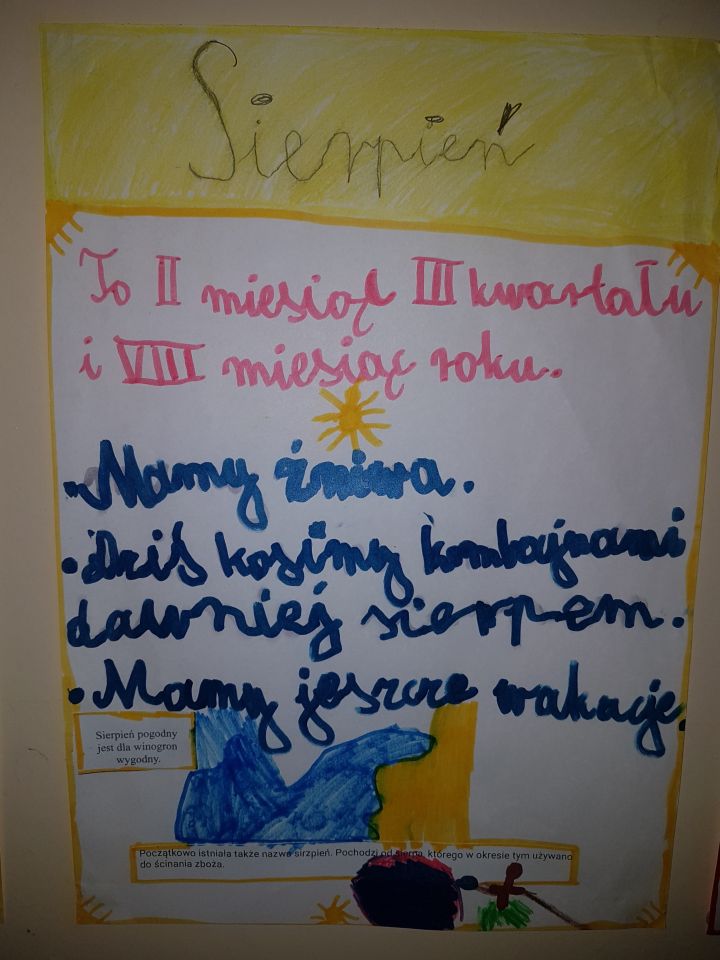 Sierpień
To II miesiąc III kwartału
i VIII miesiąc roku.
• Mamy żniwa.
• Dziś kosimy kombajnami
dawniej sierpem.
• Mamy jeszcze wakacje.
Sierpień pogodny
jest dla winogron
wygodny.
Początkowo istniała także nazwa sirzpień. Pochodzi od sierpa, którego w okresie tym używano
do ścinania zboża.